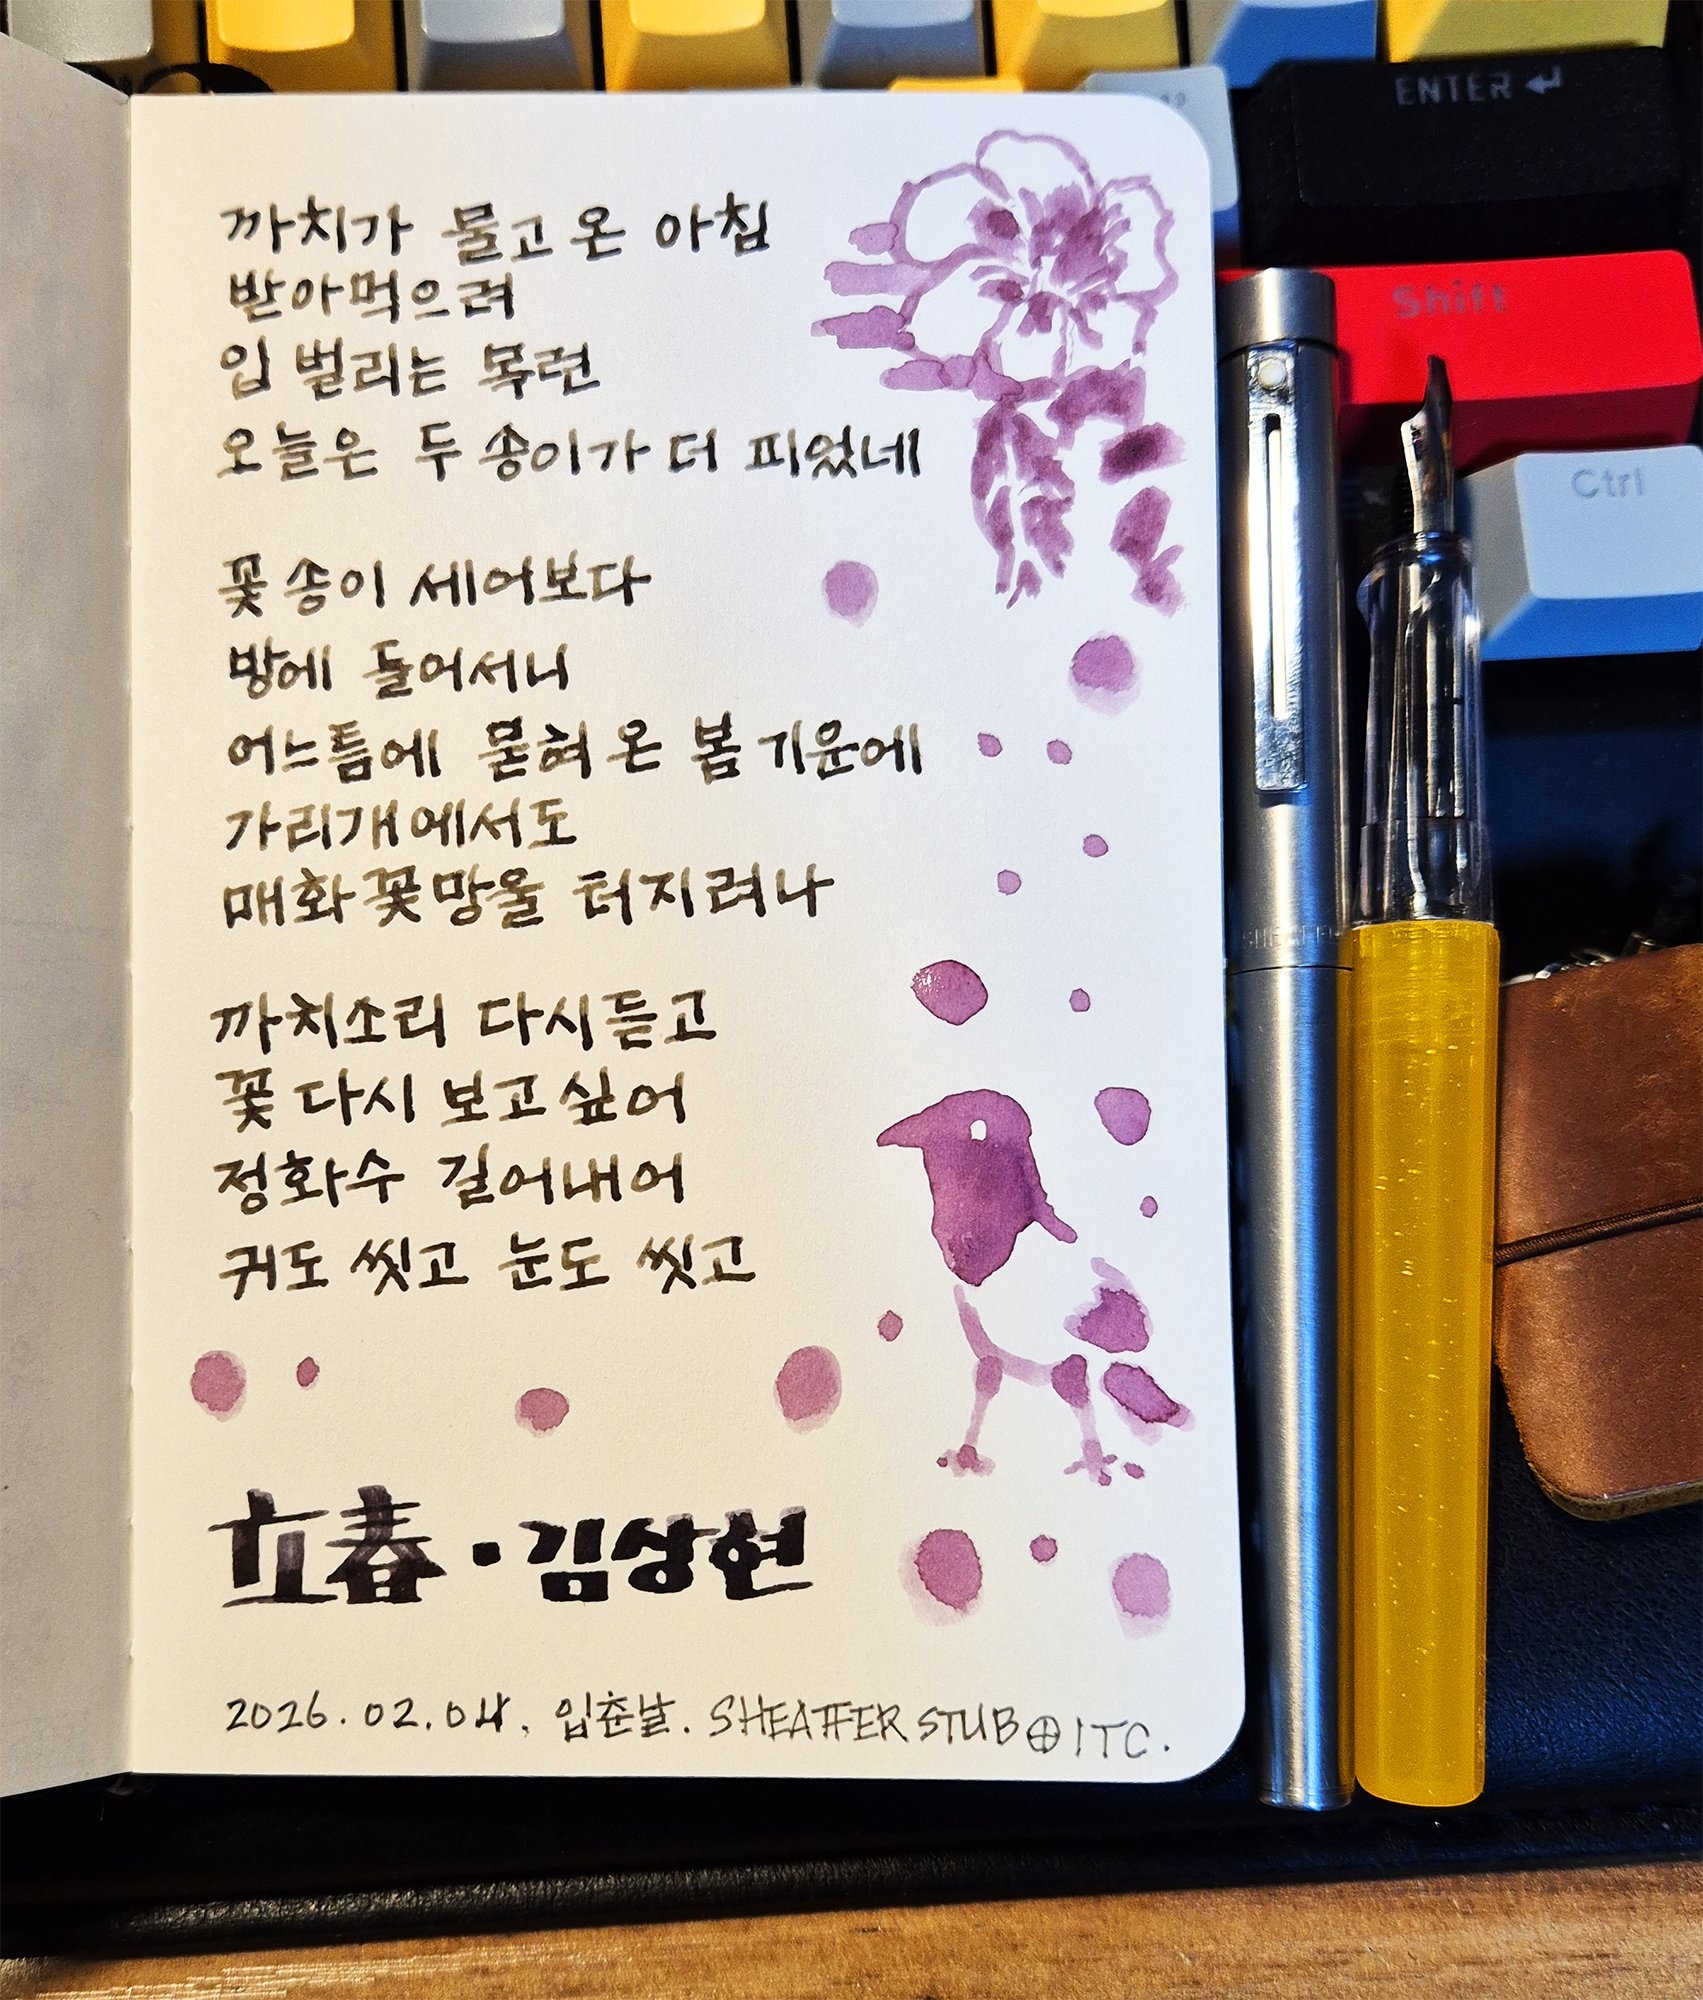 ENTER
Shift
Ctrl
까치가 물고 온 아침
받아먹으려
입 벌리는 목련
오늘은 두 송이가 더 피었네
꽃송이 세어보다
방에 들어서니
어느틈에 묻혀 온 봄기운에
가리개에서도
매화꽃망울 터지려나
까치소리 다시 듣고
꽃 다시 보고싶어
정화수 길어내어
귀도 씻고 눈도 씻고
立春 · 김상현
2026.02.04. 입춘날. SHEAFFER STUB ⊕ ITC.